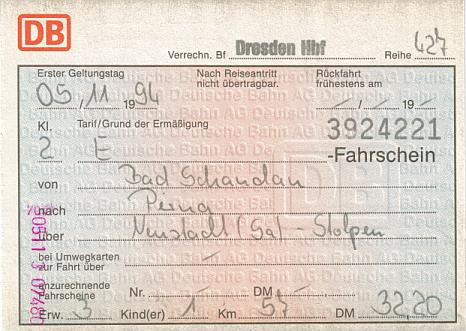 DB
Verrechn. Bf Dresden Hbf Reihe 427
Erster Geltungstag Nach Reiseantritt nicht übertragbar. Rückfahrt frühestens am
05/11 1994 -/- 19-
Kl. Tarif/Grund der Ermäßigung 3924221
2 E -Fahrschein
von Bad Schandau
nach Perna
über Neustadt (Sa) - Stolpen
bei Umwegkarten zur Fahrt über -
anzurechnende Fahrscheine Nr. - DM -
Erw. 3 Kind(er) 1 Km 57 DM 32,20